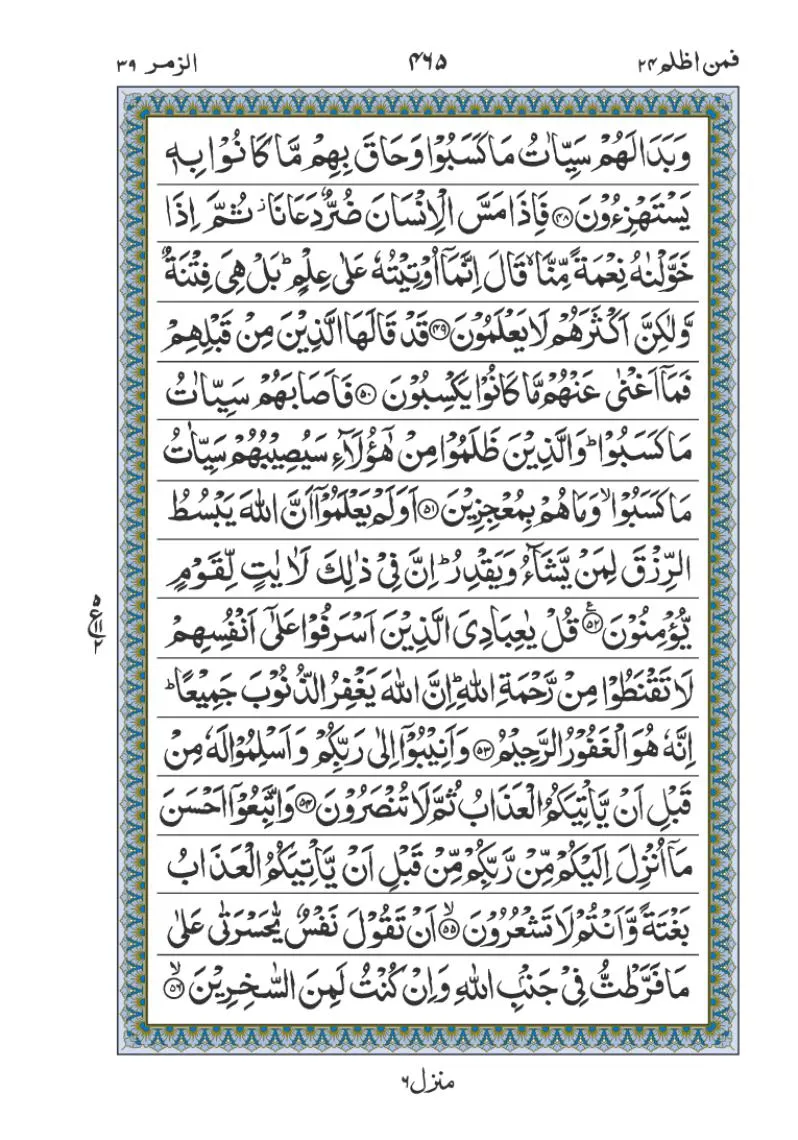 فمن اظلم ۲۴
۴۶۵
الزمر ۳۹
وَبَدَا لَهُمْ سَيِّاٰتُ مَا كَسَبُوْا وَحَاقَ بِهِمْ مَّا كَانُوْا بِهٖ
يَسْتَهْزِءُوْنَ ﴿۴۸﴾ فَاِذَا مَسَّ الْاِنْسَانَ ضُرٌّ دَعَانَا ؗ ثُمَّ اِذَا
خَوَّلْنٰهُ نِعْمَةً مِّنَّا ۙ قَالَ اِنَّمَاۤ اُوْتِيْتُهٗ عَلٰى عِلْمٍ ؕ بَلْ هِيَ فِتْنَةٌ
وَّلٰكِنَّ اَكْثَرَهُمْ لَا يَعْلَمُوْنَ ﴿۴۹﴾ قَدْ قَالَهَا الَّذِيْنَ مِنْ قَبْلِهِمْ
فَمَاۤ اَغْنٰى عَنْهُمْ مَّا كَانُوْا يَكْسِبُوْنَ ﴿۵۰﴾ فَاَصَابَهُمْ سَيِّاٰتُ
مَا كَسَبُوْا ؕ وَالَّذِيْنَ ظَلَمُوْا مِنْ هٰۤؤُلَآءِ سَيُصِيْبُهُمْ سَيِّاٰتُ
مَا كَسَبُوْا ۙ وَمَا هُمْ بِمُعْجِزِيْنَ ﴿۵۱﴾ اَوَلَمْ يَعْلَمُوْۤا اَنَّ اللّٰهَ يَبْسُطُ
الرِّزْقَ لِمَنْ يَّشَآءُ وَيَقْدِرُ ؕ اِنَّ فِيْ ذٰلِكَ لَاٰيٰتٍ لِّقَوْمٍ
يُّؤْمِنُوْنَ ﴿۵۲﴾ ع قُلْ يٰعِبَادِيَ الَّذِيْنَ اَسْرَفُوْا عَلٰۤى اَنْفُسِهِمْ
۵ ع ۱۱ ۲
لَا تَقْنَطُوْا مِنْ رَّحْمَةِ اللّٰهِ ؕ اِنَّ اللّٰهَ يَغْفِرُ الذُّنُوْبَ جَمِيْعًا ؕ
اِنَّهٗ هُوَ الْغَفُوْرُ الرَّحِيْمُ ﴿۵۳﴾ وَاَنِيْبُوْۤا اِلٰى رَبِّكُمْ وَاَسْلِمُوْا لَهٗ مِنْ
قَبْلِ اَنْ يَّاْتِيَكُمُ الْعَذَابُ ثُمَّ لَا تُنْصَرُوْنَ ﴿۵۴﴾ وَاتَّبِعُوْۤا اَحْسَنَ
مَاۤ اُنْزِلَ اِلَيْكُمْ مِّنْ رَّبِّكُمْ مِّنْ قَبْلِ اَنْ يَّاْتِيَكُمُ الْعَذَابُ
بَغْتَةً وَّاَنْتُمْ لَا تَشْعُرُوْنَ ﴿۵۵﴾ ۙ اَنْ تَقُوْلَ نَفْسٌ يّٰحَسْرَتٰى عَلٰى
مَا فَرَّطْتُّ فِيْ جَنْۢبِ اللّٰهِ وَاِنْ كُنْتُ لَمِنَ السّٰخِرِيْنَ ﴿۵۶﴾ ۙ
منزل ۶